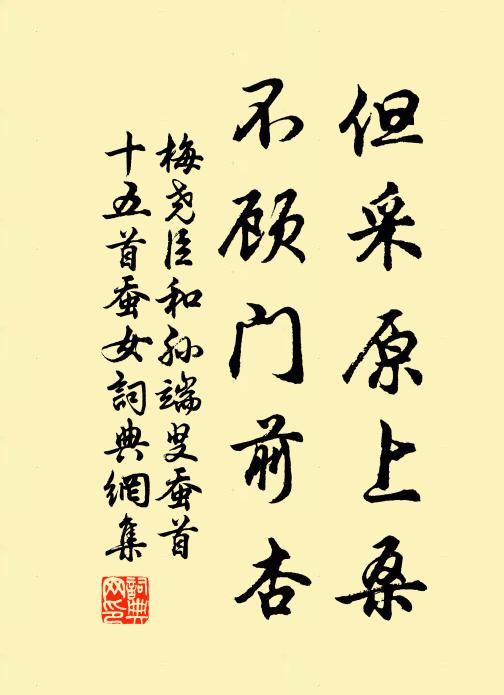 但采原上桑
不顾门前杏
梅尧臣和孙端叟蚕首
十五首蚕女詞典網集
詞典网印